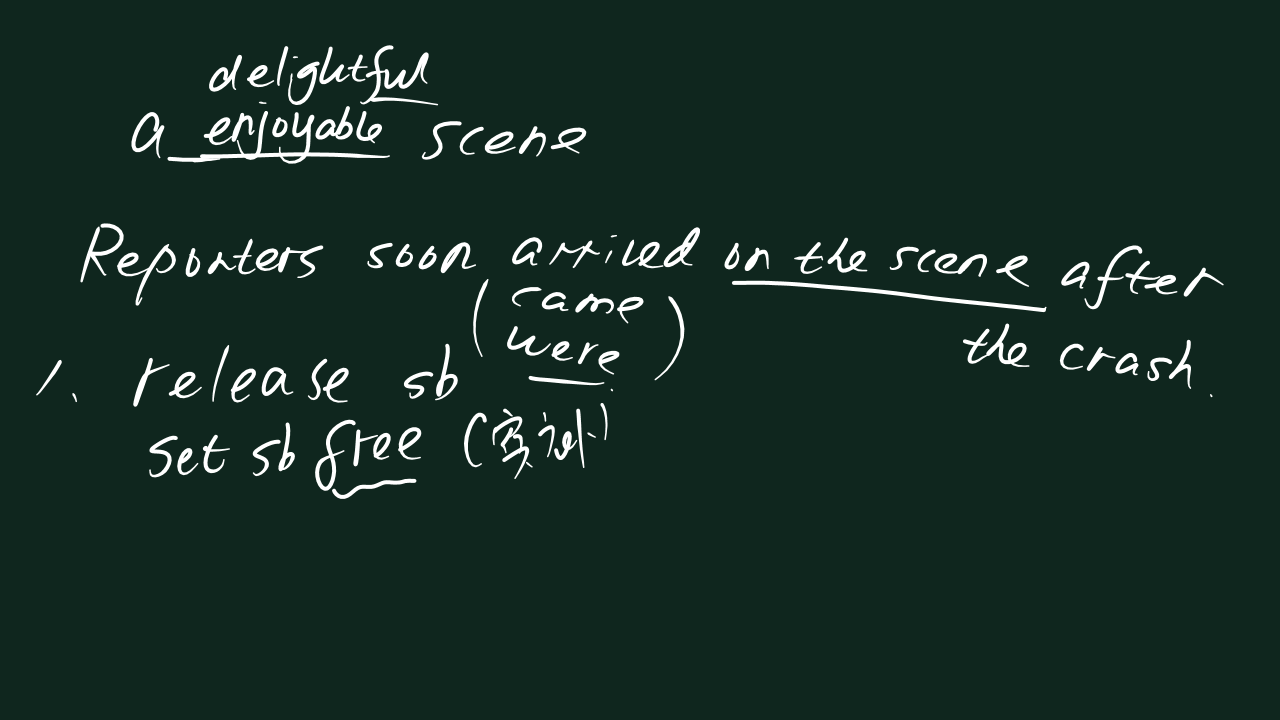 delightful
a enjoyable scene
Reporters soon arrived on the scene after
the crash.
( came
were )
1. release sb
set sb free (宾补)